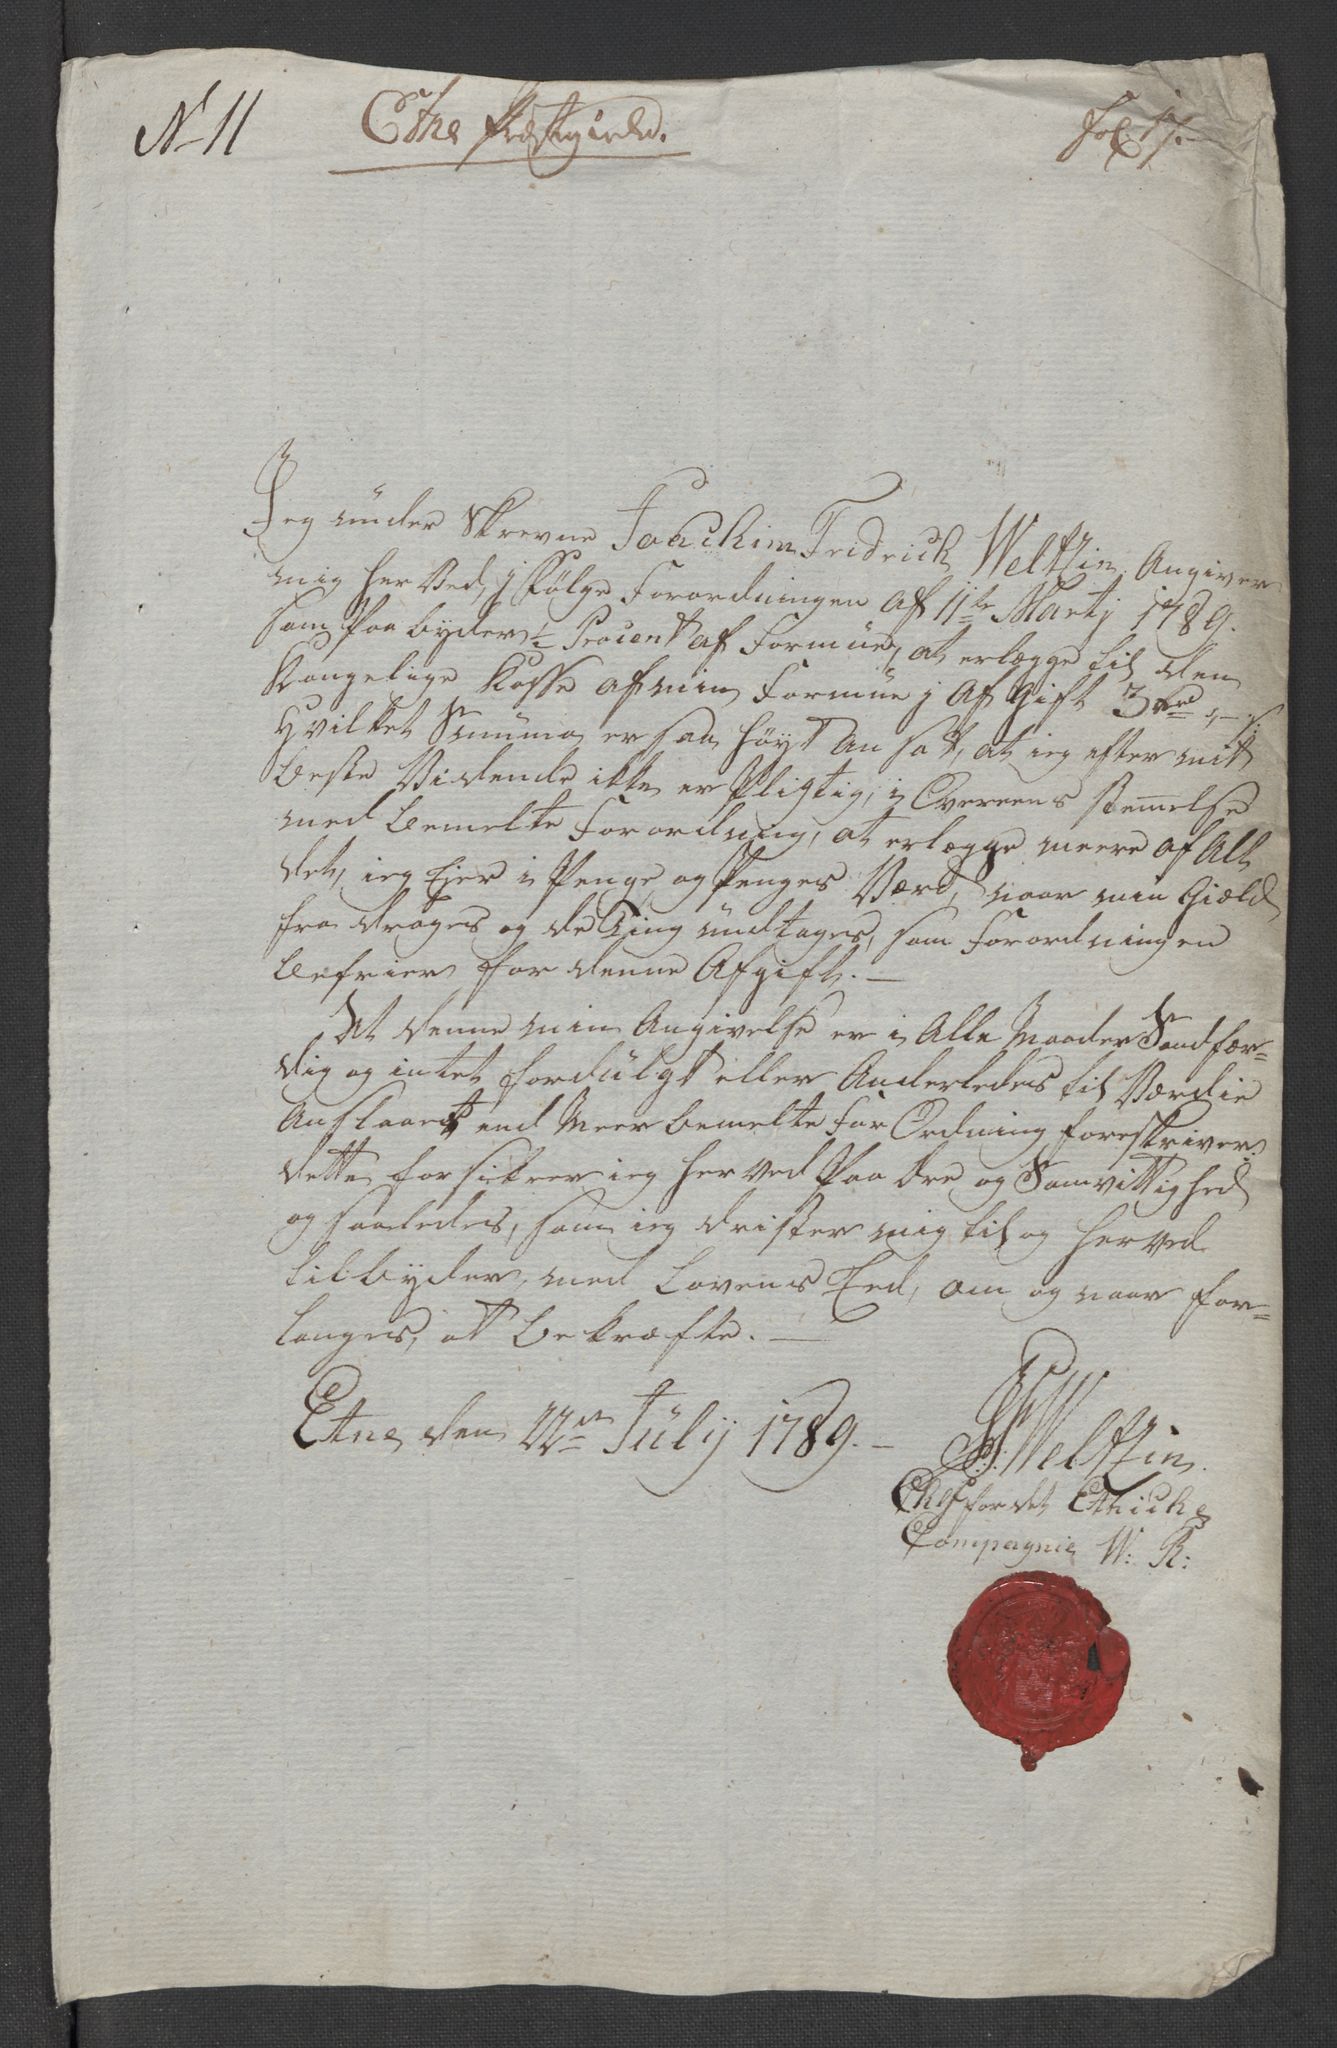 No 11 Etne Præstegield. Fol. 17.
Jeg under skrevne Joachim Fridrich Weltzin Angiver
mig her Ved, j Følge Forordningen af 11te Martj 1789.
som Paa byder ½ Procent af Formue, at erlægge til den
Kongelige Kasse af min Formue j Af Gift 3 rd
Hvilket Summa er saa høyt an sat, at ieg efter mit
beste Vidende ikke er Pligtig, i Overeens stemmelse
med bemelte Forordning, at erlægge meere af Alt
det, ieg Ejer i Penge og Penges Værd, naar min Giæld
fra drages og de Ting undtages, som Forordningen
befrier for denne Afgift. —
At denne min Angivelse er i Alle Maader Sandfær=
dig og intet fordulgt eller Anderledes til Værdie
Anslaaet end Meer bemelte For Ordning foreskriver.
dette forsikrer ieg her ved Paa Ære og Samvittighed
og saaledes, som ieg drister mig til og herved
tilbyder, med Lovens Eed, om og naar for=
langes, at bekræfte. —
Etne den 22de July 1789. —
JFWeltzin.
Chef for det Ethiske
Compagnie W: R: